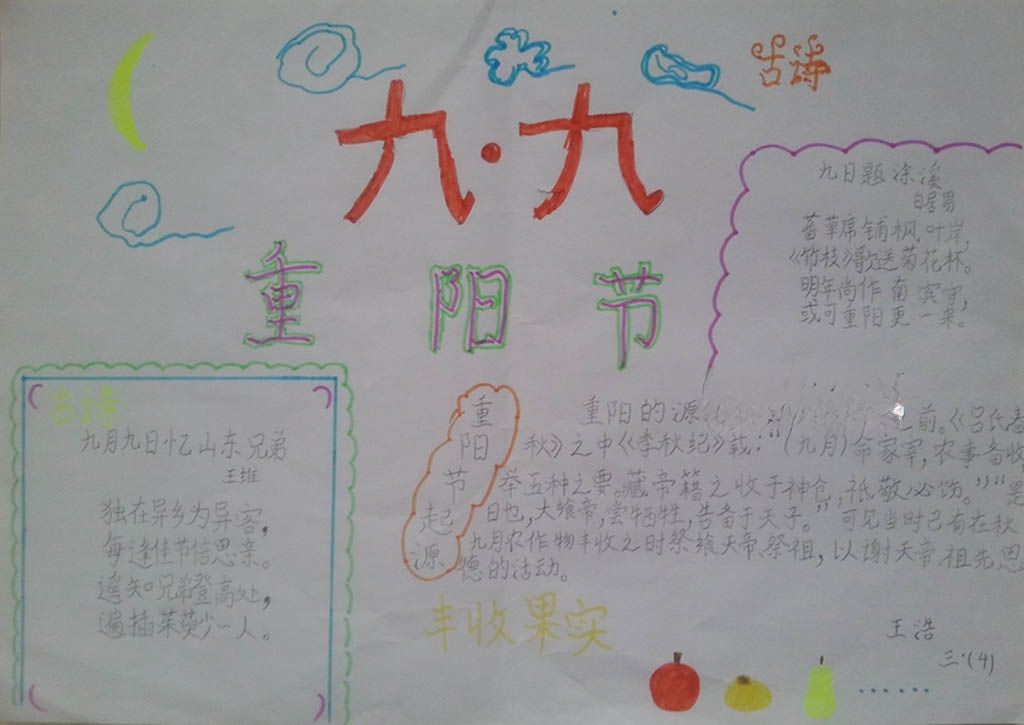 古诗
九·九
重阳节
九日题涂溪
白居易
蕃草席铺枫叶岸,
《竹枝》歌送菊花杯。
明年尚作南宾守,
或可重阳更一来。
古诗
九月九日忆山东兄弟
王维
独在异乡为异客,
每逢佳节倍思亲。
遥知兄弟登高处,
遍插茱萸少一人。
重阳节起源
重阳的源 前。《吕氏春
秋》之中《季秋纪》载:“(九月)命家宰,农事备收
举五种之要。藏帝籍之收于神仓,祗敬必饬。”“是
日也,大飨帝,尝牺牲,告备于天子。”可见当时已有在秋
九月农作物丰收之时祭飨天帝、祭祖,以谢天帝、祖先恩
德的活动。
丰收果实
王浩
三·(4)